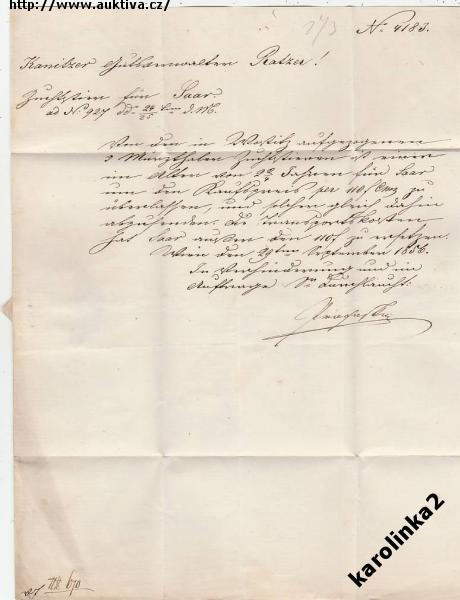 http://www.auktiva.cz/
173
No 4183.
Kanitzer Gutsverwalter Ratzer!
Zuchtstier für Saar.
ad No 927 dd 24/25 d. M.
Von den in Wostitz aufgezogenen
2 Mürzthaler Zuchtstieren ist einer
im Alter von Jahren für Saar
um den Kaufspreis per 110f CMz zu
überlassen, und solcher gleich dahin
abzusenden. Die Transportskosten
hat Saar ausser den 110f zu ersetzen.
Wien den 29ten September 1856.
In Verhinderung und im
Auftrage Sr Durchlaucht:
karolinka2